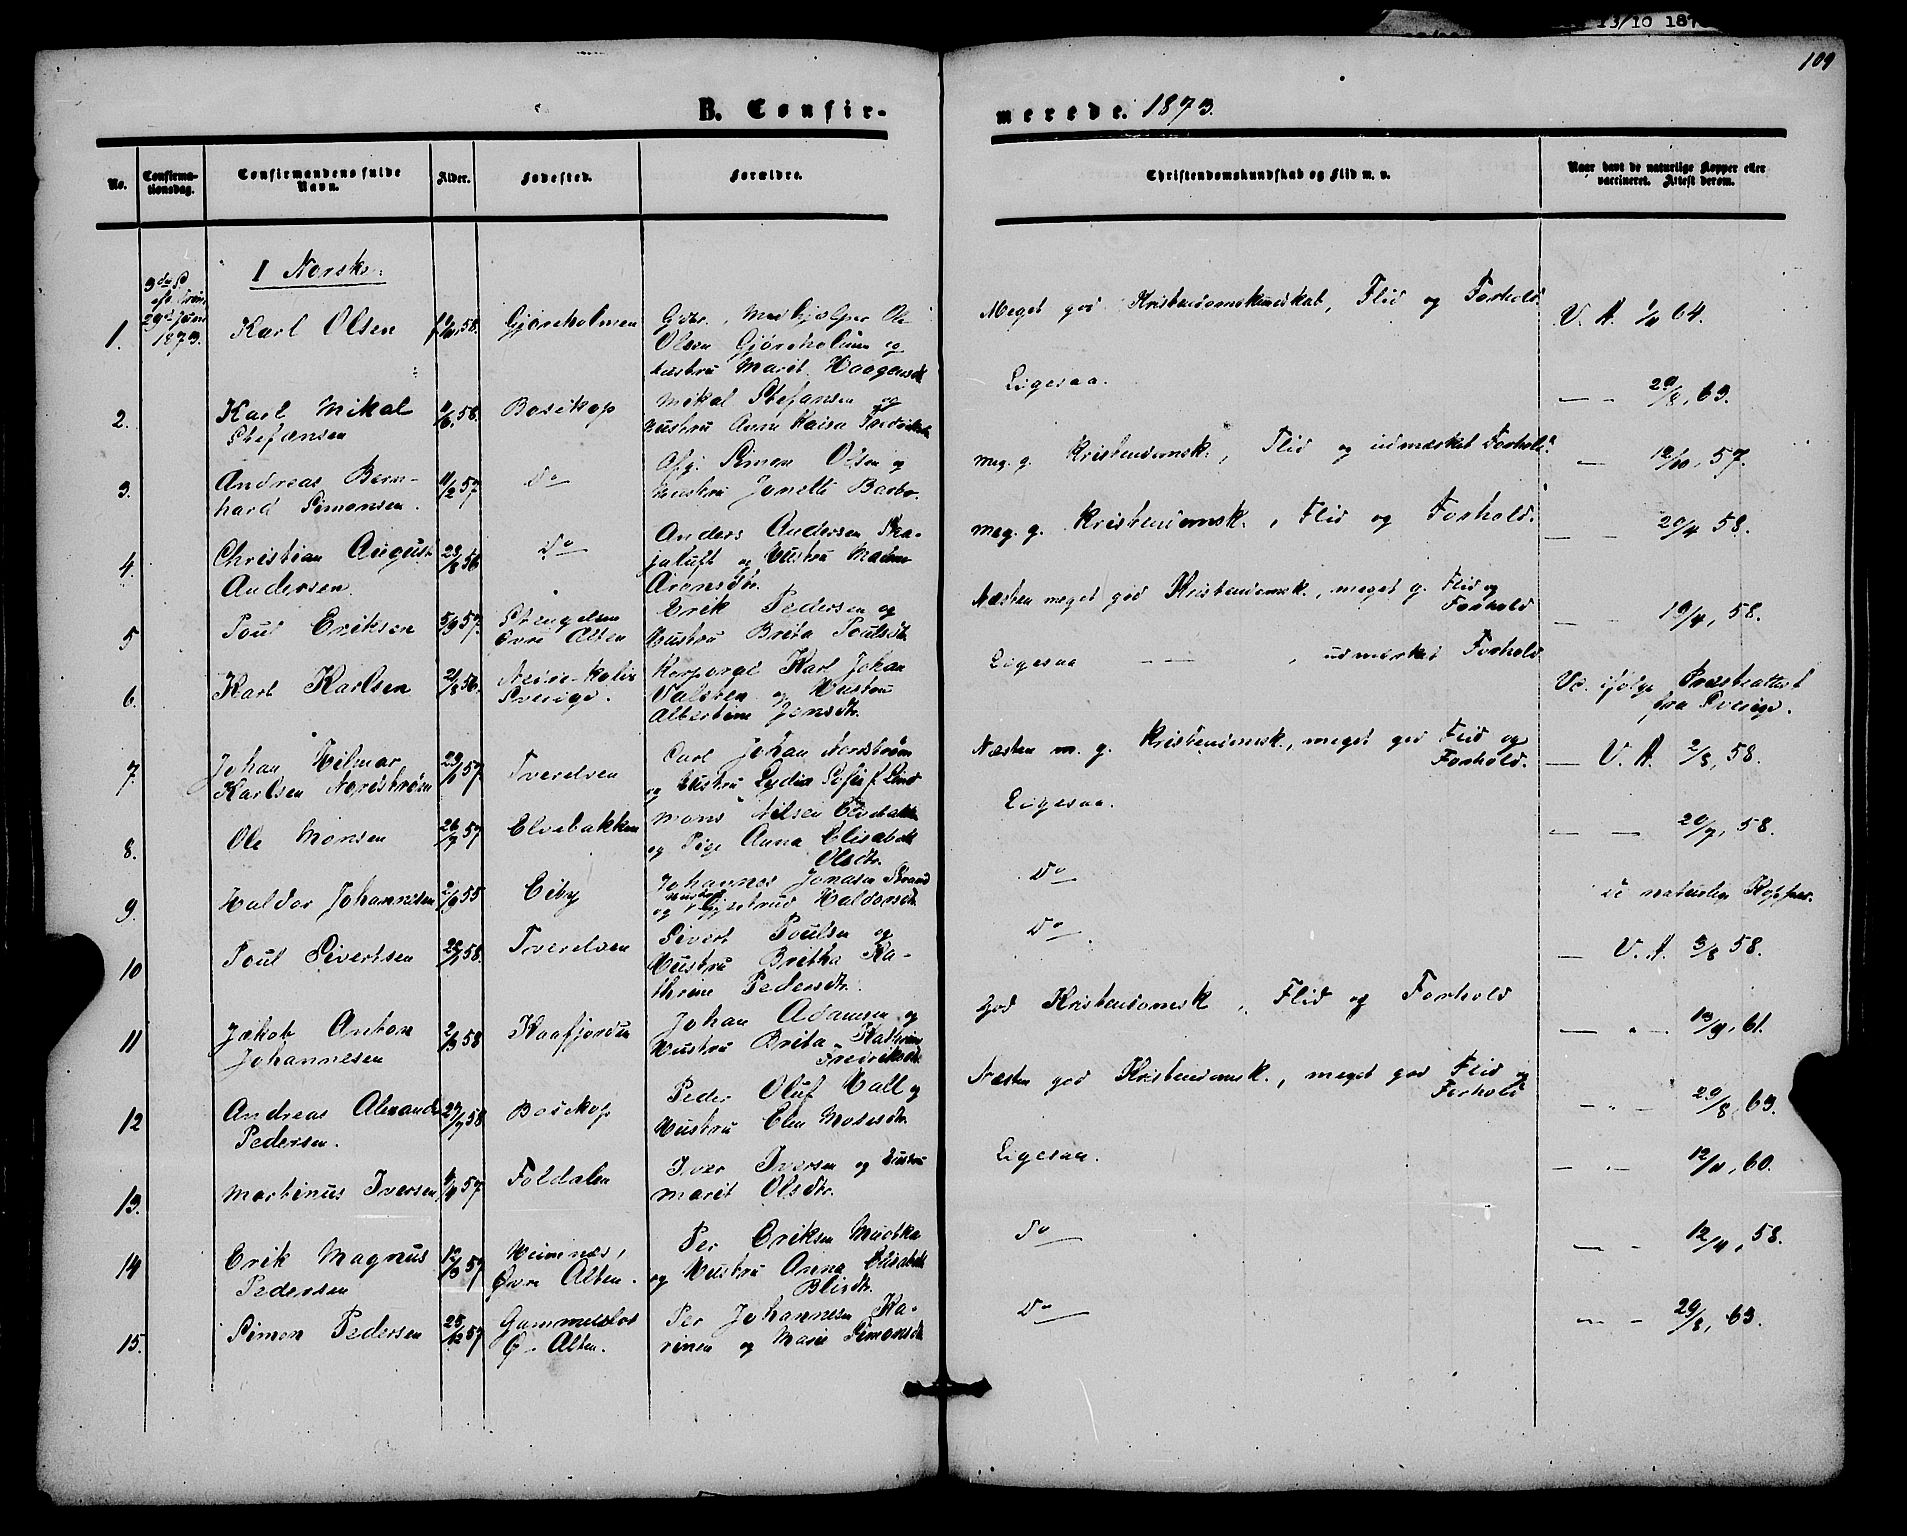 13/10 187
109
B. Confir-
merede. 1873.
No.
Confirma-
tionsdag.
Confirmandens fulde
Navn.
Alder.
Fødested.
Forældre.
Christendomskundskab og Flid m. v.
Naar havt de naturlige Kopper eller
vaccineret. Attest derom.
I Norske:
29de Juni
1873.
1. Karl Olsen 58. Gjøreholmen
Olsen Gjøreholmen og
Hustru Marit Haagensdt
Meget god Kristendomskundskab, Flid og Forhold. V. A. 64.
2. Karl Mikal
Stefansen
58. Bosekop
Mikal Stefansen og
Hustru Anne Kaisa
Ligesaa. — — 29/8, 63.
3. Andreas Bern-
hard Simonsen.
11/2 57. Do
Simon Olsen og
Hustru
meg. g. Kristendomsk., Flid og udmærket Forhold. — 12/10, 57.
4. Christian August
Andersen.
Do
Anders Andersen Ska-
jaluft og Hustru
Arensdtr.
meg. g. Kristendomsk., Flid og Forhold. — — 20/4 58.
5 Poul Eriksen 5/9 57. Stengelsen
Øvre Alten
Erik Pedersen og
Hustru Brita Poulsdt.
Næsten meget god Kristendomsk., meget g. Flid og
Forhold
— — 19/4, 58.
6. Karl Karlsen
Sverige.
Korporal Karl Johan
og Hustru
Albertine Jensdtr.
Ligesaa — — , udmærket Forhold
Va. ifølge Præsteattest
fra Sverige.
7. Johan Hilmar
Karlsen Nordstrøm
57. Tverelven
Carl Johan Nordstrøm
og Hustru Lydia Sofie f. Lind
Næsten m. g. Kristendomsk., meget god Flid og
Forhold.
— V. A. 2/8, 58.
8. Ole Monsen 26/7 57 Elvebakken
Mons Nilsen Elvebakken
og Pige Anna Elisabeth
Olsdtr.
Ligesaa. — — 20/7, 58.
9 Haldor Johannesen 2/9 55 Eiby
Johannes Jonasen Strand
og Hustru Gjertrud Haldorsdt.
Do
naturlige Kopper.
10 Poul Sivertsen 58. Tverelven
Sivert Poulsen og
Hustru Britha Ka-
thrine Pedersdtr.
Do — V. A. 3/8 58.
11 Jakob Anton
Johannesen
2/3 58 Kaafjorden
Johan Adamsen og
Hustru Brita Kathrine
Fredriksdt.
God Kristendomsk., Flid og Forhold — " — 13/9, 61.
12 Andreas Alexander
Pedersen.
58 Bosekop
Peder Oluf Hall og
Hustru Elen Mosesdtr.
Næsten god Kristendomsk., meget god Flid og
Forhold
— " — 29/8, 63.
13. Martinus Iversen 57. Foldalen
Iver Iversen og Hustru
Marit Olsdtr.
Ligesaa. — " — 12/11, 60.
14 Erik Magnus
Pedersen
12/3 57
Øvre Alten.
Per Eriksen
og Hustru Anna Elisabeth
Do — — 12/4, 58.
15. Simon Pedersen 25/12 57 Gammelslot
Ø. Alten.
Per Johannesen Ka-
rinen og Marie Simonsdt
Do — — 29/8, 63.